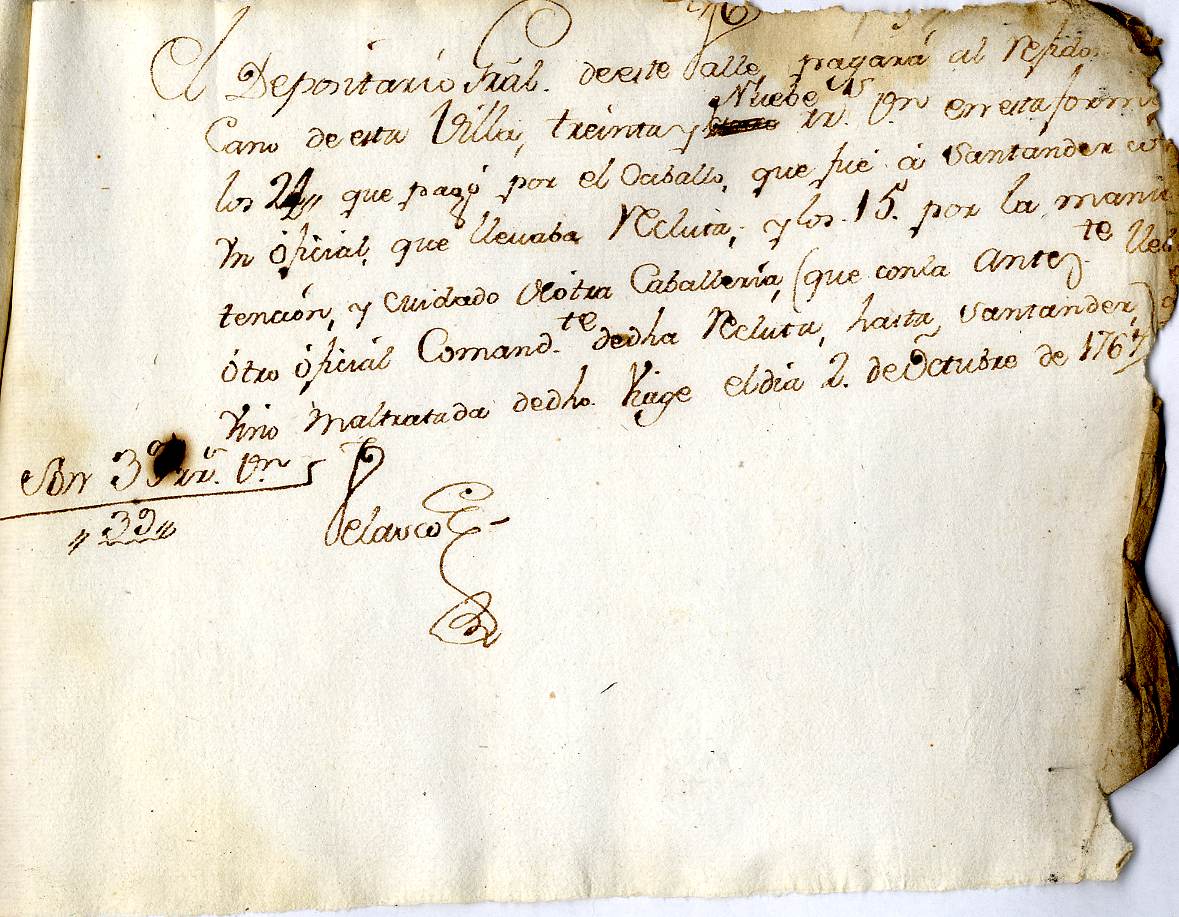 El Depositario Gral. de este Valle, pagará al Rexidor
Nuebe
Cano de esta Villa, treinta y rr.s V.n en esta forma
los 24,, que pagó por el Caballo, que fué á Santander
Vn Oficial, que llevaba Recluta; y los 15. por la manu
tención, y cuidado de otra Caballería, (que con la Antez.te lleb
ótro óficial Comand.te de dha Recluta, hasta Santander)
Vino maltratada de dho. Viage el dia 2. de Octubre de 1767
Son 39 rr.s V.n
,, 39 ,,
Velasco